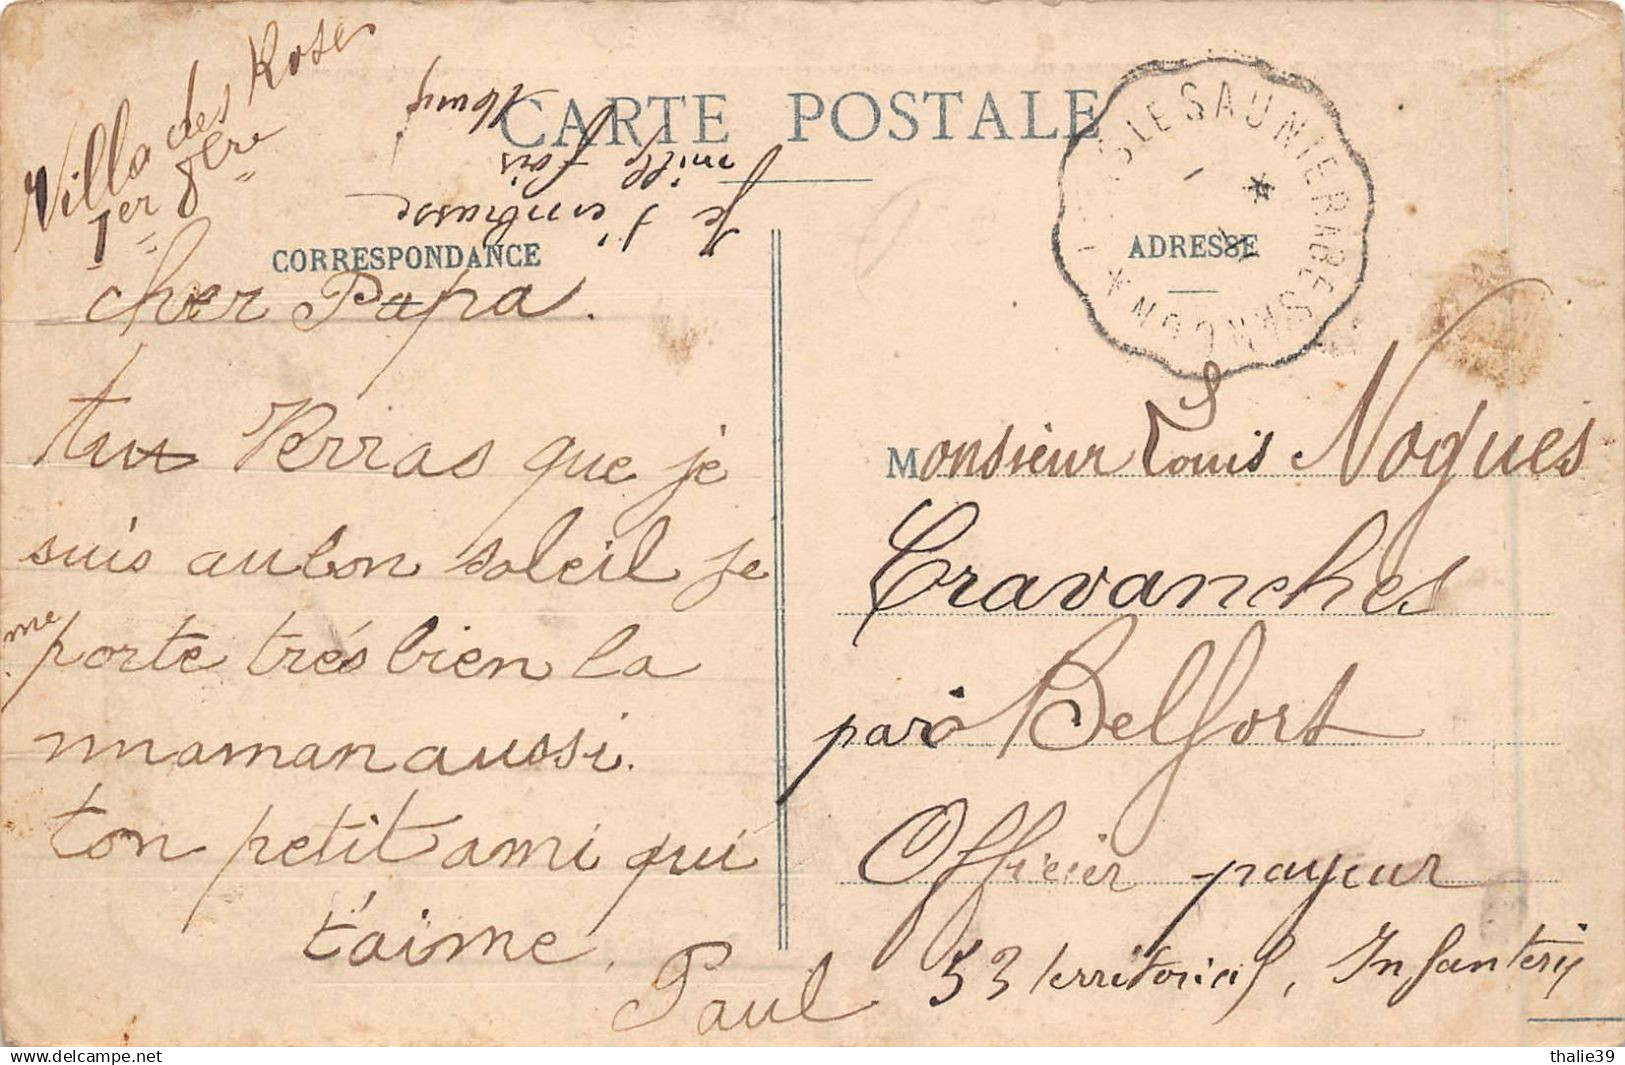 Villa des Roses
1er 8bre
CARTE POSTALE
CORRESPONDANCE
ADRESSE
cher Papa.
tu Verras que je
suis au bon soleil je
me porte très bien la
maman aussi.
ton petit ami qui
t'aime,
Paul
Je t'embrasse
mille fois
LE SAUNIER A BESANCON
Monsieur Louis Nogues
Cravanches
par Belfort
Officier payeur
53 territorial, Infanterie
thalie39